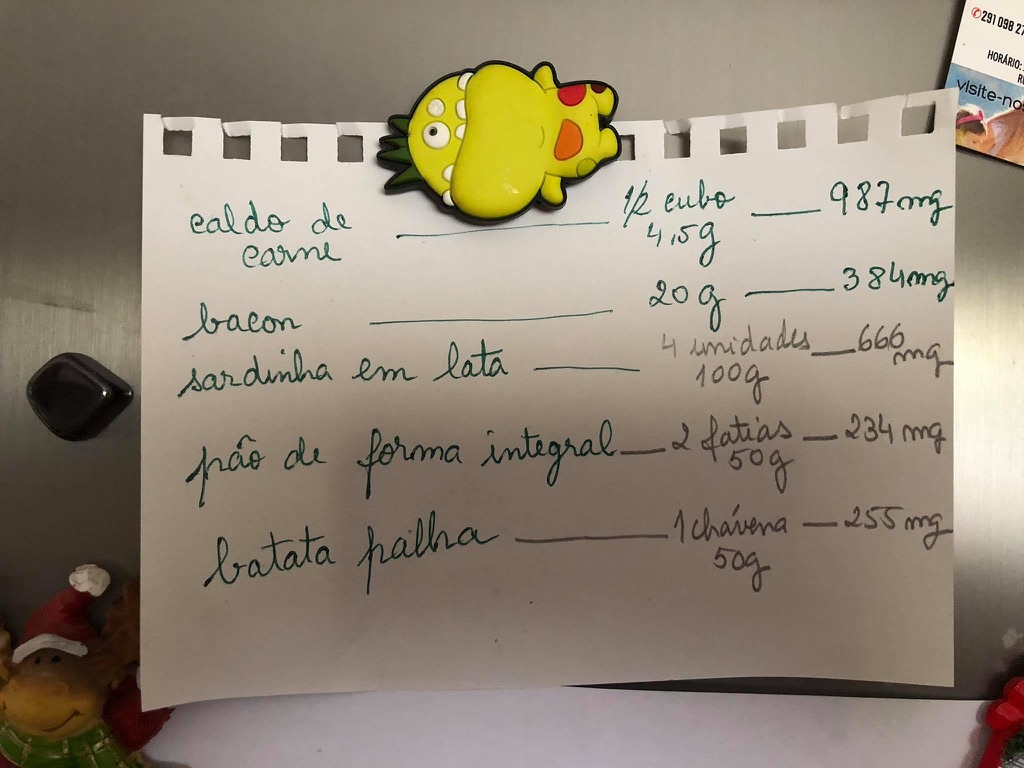 291 098 27
HORÁRIO:
visite-no
caldo de carne ____ 1/2 cubo ____ 987mg
4,5g
bacon ____ 20g ____ 384mg
sardinha em lata ____ 4 unidades ____ 666 mg
100g
pão de forma integral ____ 2 fatias ____ 234 mg
50g
batata palha ____ 1 chávena ____ 255 mg
50g